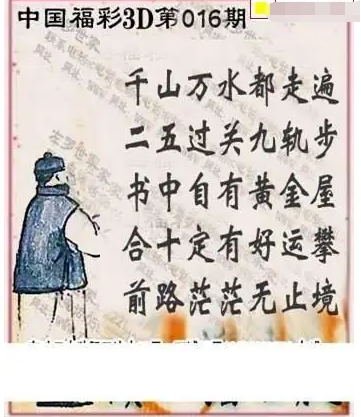 中国福彩3D第016期
千山万水都走遍
二五过关九轨步
书中自有黄金屋
合十定有好运攀
前路茫茫无止境